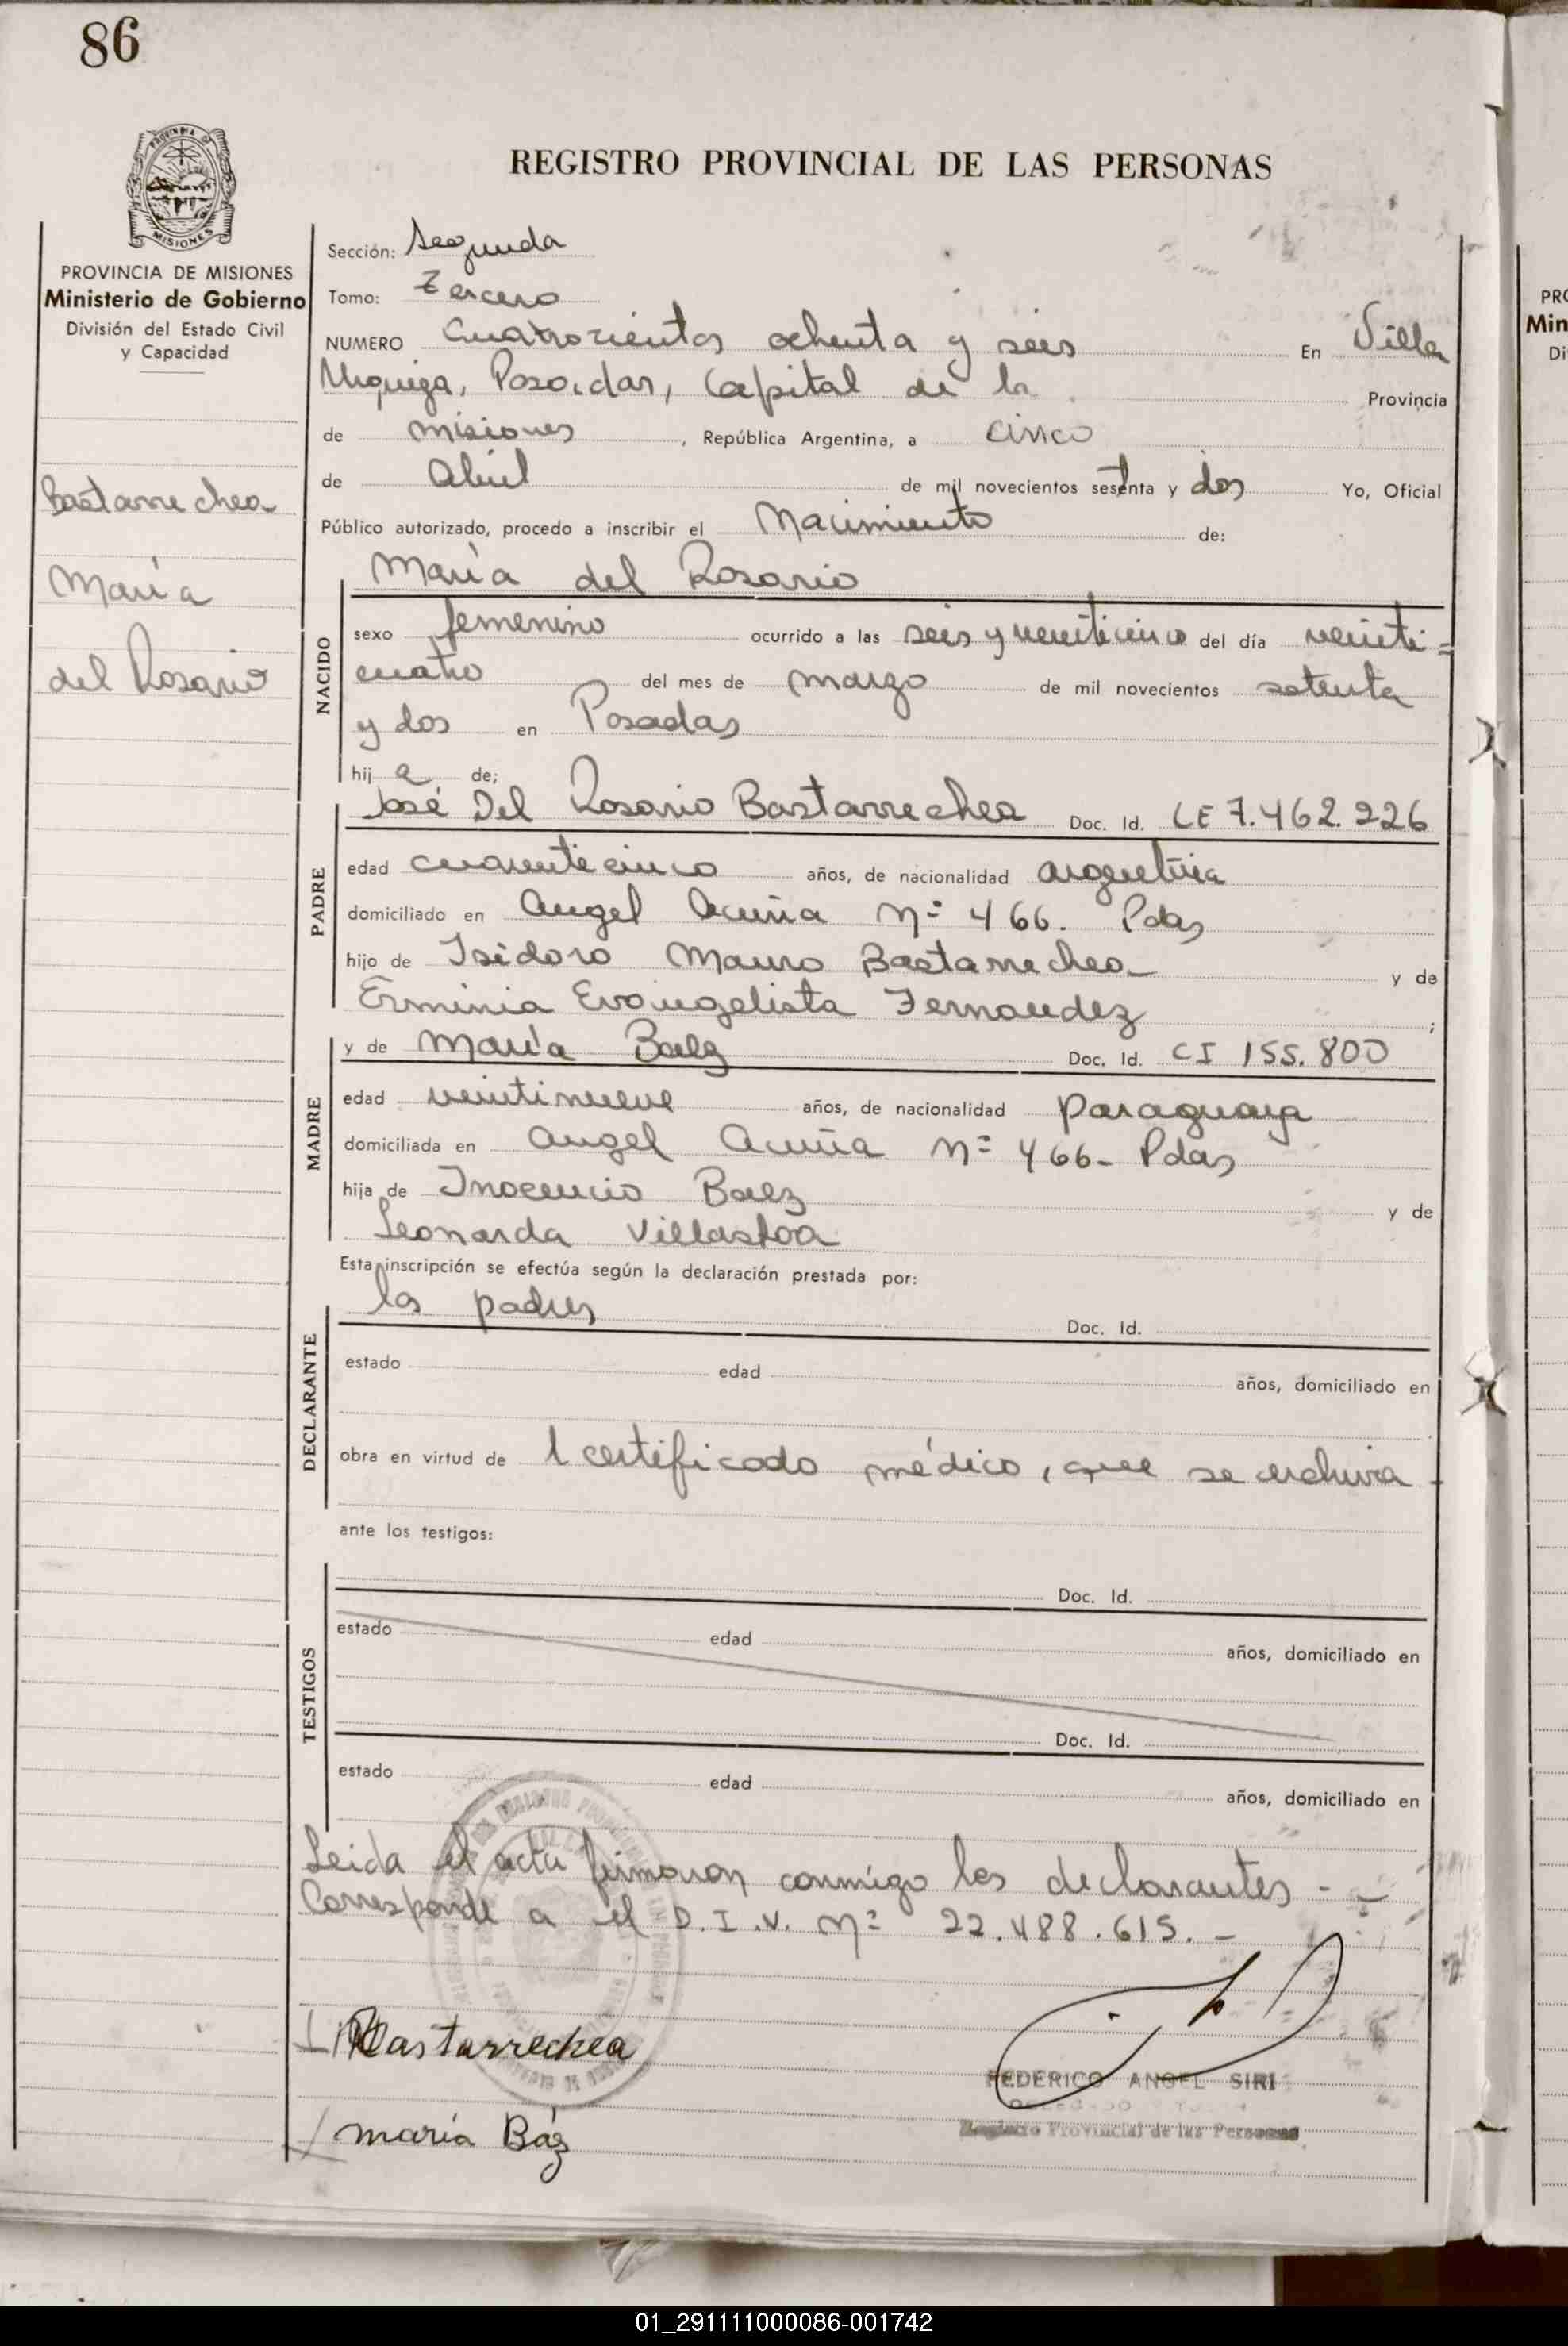 86
REGISTRO PROVINCIAL DE LAS PERSONAS
PROVINCIA DE MISIONES
MISIONES
PROVINCIA DE MISIONES
Ministerio de Gobierno
División del Estado Civil
y Capacidad
Bastarrechea
María
del Rosario
Sección: Segunda
Tomo: Tercero
NUMERO Cuatrocientos ochenta y seis En Villa
Urquiza, Posadas, Capital de la Provincia
de Misiones, República Argentina, a cinco
de Abril de mil novecientos setenta y dos Yo, Oficial
Público autorizado, procedo a inscribir el Nacimiento de:
María del Rosario
NACIDO
sexo femenino ocurrido a las seis y veinticinco del día veinti=
cuatro del mes de marzo de mil novecientos setenta
y dos en Posadas
hij a de;
José Del Rosario Bastarrechea Doc. Id. LE 7.462.226
PADRE
edad cuarenticinco años, de nacionalidad argentina
domiciliado en Angel Acuña Nº 466. Pdas
hijo de Isidoro Mauro Bastarrechea y de
Erminia Evangelista Fernandez ;
y de María Baez Doc. Id. CI 155.800
MADRE
edad veintinueve años, de nacionalidad paraguaya
domiciliada en Angel Acuña Nº 466- Pdas
hija de Inocencio Baez y de
Leonarda Villasboa
Esta inscripción se efectúa según la declaración prestada por:
los padres Doc. Id.
DECLARANTE
estado edad años, domiciliado en
obra en virtud de 1 certificado médico, que se archiva -
ante los testigos:
Doc. Id.
TESTIGOS
estado edad años, domiciliado en
Doc. Id.
estado edad años, domiciliado en
Leida el acta firmaron conmigo los declarantes - -
Corresponde a el D.I.V. Nº 22.488.615. -
Bastarrechea
FEDERICO ANGEL SIRI
Registro Provincial de las Personas
maría Báz
01_291111000086-001742
PRO
Min
Di